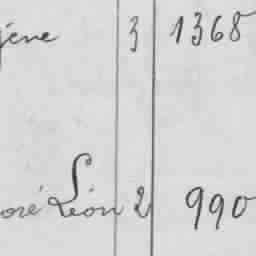 jène 3 1368
oré Léon 2 990